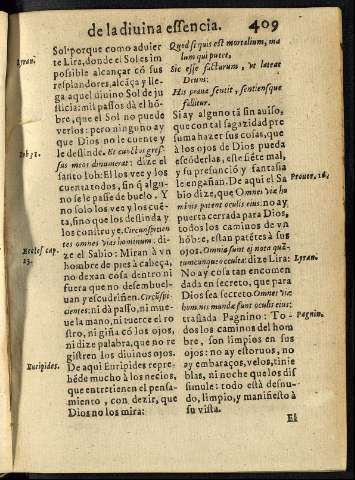 de la diuina essencia. 409
Sol: porque como aduier
te Lira, donde el Sol es im
possible alcançar có sus
resplandores, alcáça y lle-
ga aquel diuino Sol de ju
sticia: mil passos dà el hô-
bre, que el Sol no puede
verlos: pero ninguno ay
que Dios no le cuente y
le deslinde. Et cunctos gres-
sus meos dinumerat: dize el
santo Iob: El los vee y los
cuenta todos, sin q̃ algu-
no se le passe de buelo. Y
no solo los vee y los cuē-
ta, sino que los deslinda y
los construye. Circunspicien
tes omnes vias hominum. di-
ze el Sabio: Miran à vn
hombre de pies à cabeça,
no dexan cosa dentro ni
fuera que no desembuel-
uan y escudriñen. Circũspi-
cientes: ni dà passo, ni mue
ue la mano, ni tuerce el ro
stro, ni giña có los ojos,
ni dize palabra, que no re
gistren los diuinos ojos.
De aqui Euripides repre-
hēde mucho à los necios,
que entretienen el pensa-
miento, con dezir, que
Dios no los mira:
Lyran.
Iob 31.
Eccles cap.
23.
Euripides.
Quod si quis est mortalium, ma
lum qui putet,
Sic esse facturum, vt lateat
Deum:
His praue sentit, sentiensque
fallitur.
Si ay alguno tã sin auiso,
que con tal sagazidad pre
suma hazer sus cosas, que
à los ojos de Dios pueda
escõderlas, este siēte mal,
y su presunciõ y fantasia
le engañan. De aqui el Sa
bio dize, que Omnes viæ ho
minis patent oculis eius. no ay
puerta cerrada para Dios,
todos los caminos de vn
hõbre, estan patētes à sus
ojos. Omnia sunt ei nota quã-
tumcunque occulta: dize Lira:
No ay cosa tan encomen
dada en secreto, que para
Dios sea secreto. Omnes viæ
hominis mundæ sunt oculis eius:
traslada Pagnino: To-
dos los caminos del hom
bre, son limpios en sus
ojos: no ay estoruos, no
ay embaraços, velos, tinie
blas, ni noche que los dis
simule: todo està desnu-
do, limpio, y manifiesto à
su vista.
Prouer. 16.
Lyran.
Pagnin.
El